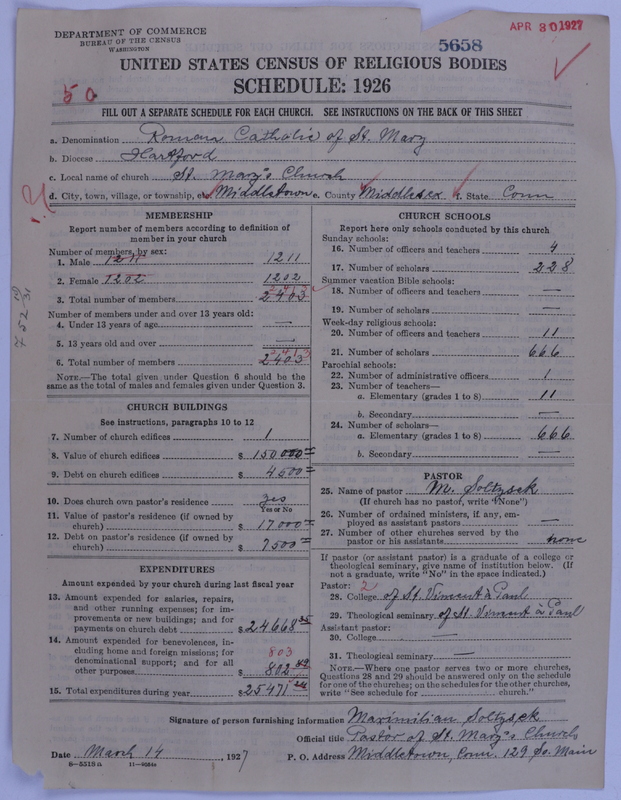 DEPARTMENT OF COMMERCE
BUREAU OF THE CENSUS
WASHINGTON
APR 30 1927
5658
UNITED STATES CENSUS OF RELIGIOUS BODIES
SCHEDULE: 1926
50
FILL OUT A SEPARATE SCHEDULE FOR EACH CHURCH. SEE INSTRUCTIONS ON THE BACK OF THIS SHEET
a. Denomination Roman Catholic of St. Mary
b. Diocese Hartford
c. Local name of church St. Mary's Church
d. City, town, village, or township, etc. Middletown e. County Middlesex f. State Conn
MEMBERSHIP
Report number of members according to definition of
member in your church
Number of members, by sex:
1. Male 1211 1211
2. Female 1202 1202
3. Total number of members 2403 2413
Number of members under and over 13 years old:
4. Under 13 years of age —
5. 13 years old and over —
6. Total number of members 2403 2413
NOTE.—The total given under Question 6 should be the
same as the total of males and females given under Question 3.
CHURCH BUILDINGS
See instructions, paragraphs 10 to 12
7. Number of church edifices 1
8. Value of church edifices $ 150000=
9. Debt on church edifices $ 4500=
10. Does church own pastor's residence yes
Yes or No
11. Value of pastor's residence (if owned by
church) $ 17000=
12. Debt on pastor's residence (if owned by
church) $ 7500=
EXPENDITURES
Amount expended by your church during last fiscal year
13. Amount expended for salaries, repairs,
and other running expenses; for im-
provements or new buildings; and for
payments on church debt $ 24668
14. Amount expended for benevolences, in-
cluding home and foreign missions; for 803
denominational support; and for all
other purposes $ 802
15. Total expenditures during year $ 25471
CHURCH SCHOOLS
Report here only schools conducted by this church
Sunday schools:
16. Number of officers and teachers 4
17. Number of scholars 228
Summer vacation Bible schools:
18. Number of officers and teachers —
19. Number of scholars —
Week-day religious schools:
20. Number of officers and teachers 11
21. Number of scholars 666
Parochial schools:
22. Number of administrative officers 1
23. Number of teachers—
a. Elementary (grades 1 to 8) 11
b. Secondary —
24. Number of scholars—
a. Elementary (grades 1 to 8) 666
b. Secondary —
PASTOR
25. Name of pastor M. Soltysek
(If church has no pastor, write "None")
26. Number of ordained ministers, if any, em-
ployed as assistant pastors —
27. Number of other churches served by the
pastor or his assistants none
If pastor (or assistant pastor) is a graduate of a college or
theological seminary, give name of institution below. (If
not a graduate, write "No" in the space indicated.)
Pastor: 2
28. College of St. Vincent à Paul
29. Theological seminary of St. Vincent à Paul
Assistant pastor:
30. College —
31. Theological seminary —
NOTE.—Where one pastor serves two or more churches,
Questions 28 and 29 should be answered only on the schedule
for one of the churches; on the schedules for the other churches,
write "See schedule for church."
Signature of person furnishing information Maximilian Soltysek
Official title Pastor of St. Mary's Church,
Date March 14, 1927 P. O. Address Middletown, Conn. 129 So. Main
8-5518a 11-9684a